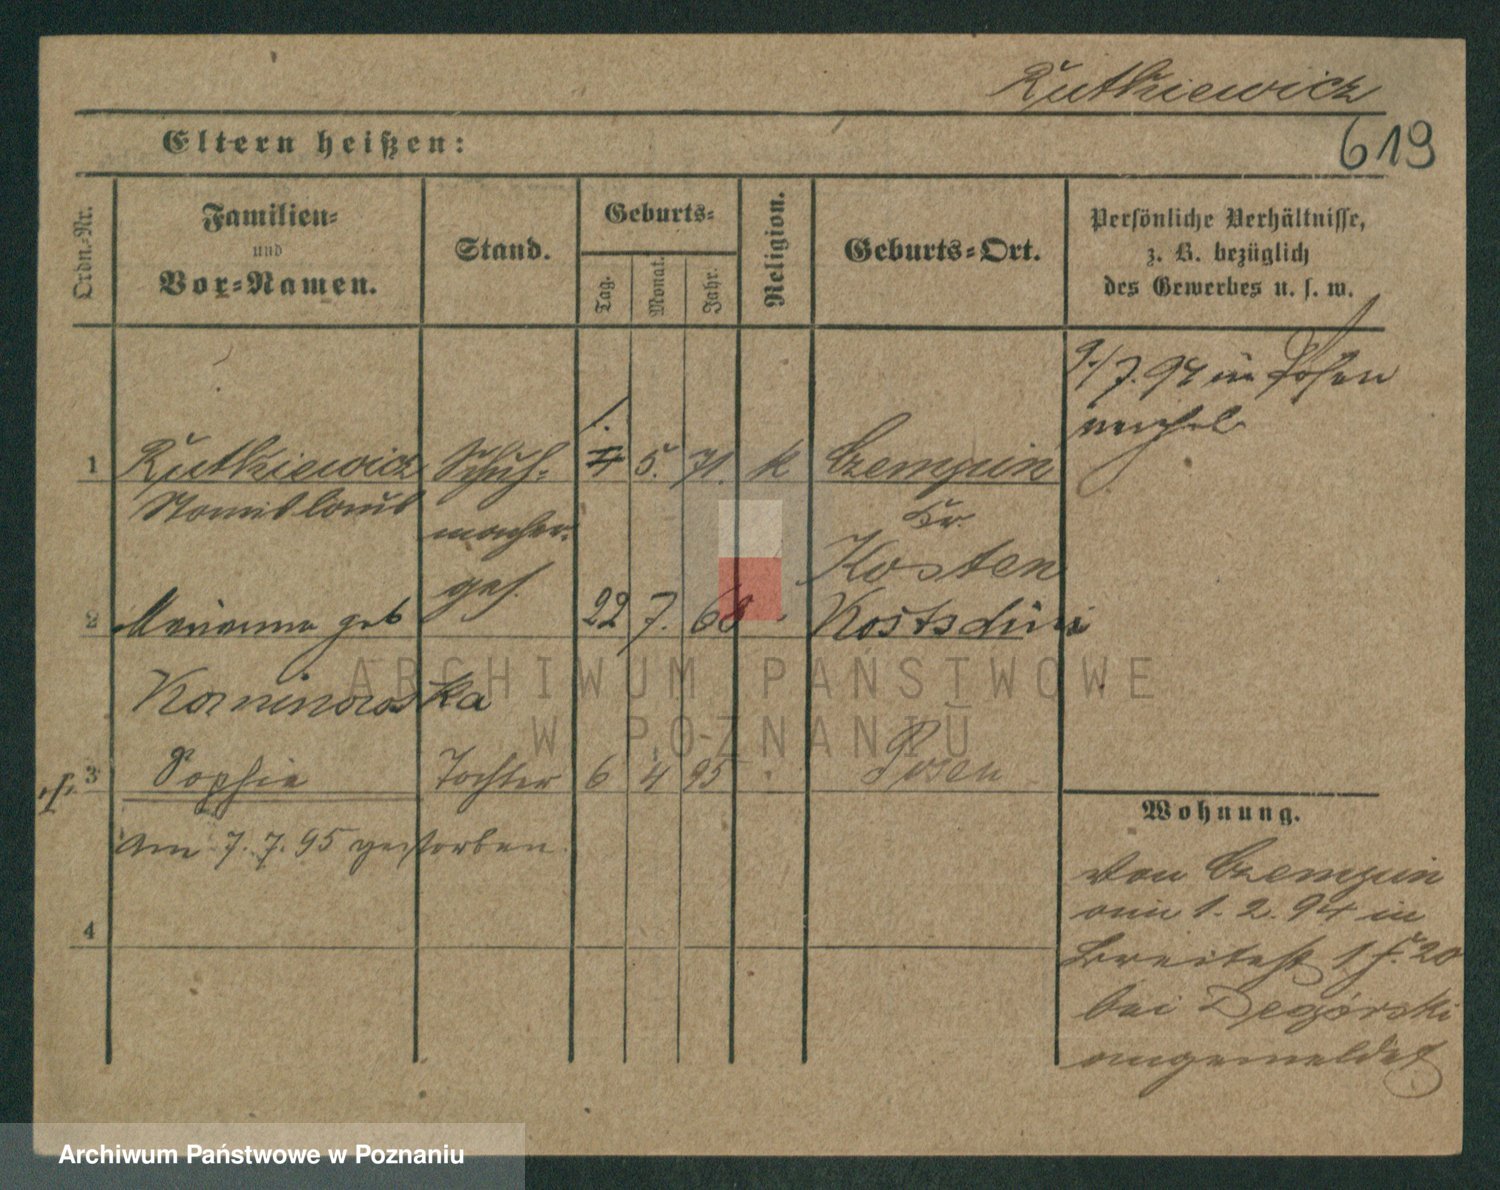 Rutkiewicz
619
Eltern heißen:
Ordn.-Nr.
Familien-
und
Vor-Namen.
Stand.
Geburts-
Tag.
Monat.
Jahr.
Religion.
Geburts-Ort.
Persönliche Verhältnisse,
z. B. bezüglich
des Gewerbes u. s. w.
9./7. 94 in Posen
1 Rutkiewicz Schuh- 1. 5. 71. k Czempin
Stanislaus macher- Kr.
ges. Kosten
2 Marianna geb 22 7. 68 Kostschin
Korninowska
3 Sophie Tochter 6 4 95 Posen
am 7. 7. 95 gestorben
4
Wohnung.
von Czempin
am 1. 2. 94 in
Breitestr 20
bei Degórski
angemeldet
ARCHIWUM PAŃSTWOWE
W POZNANIU
Archiwum Państwowe w Poznaniu